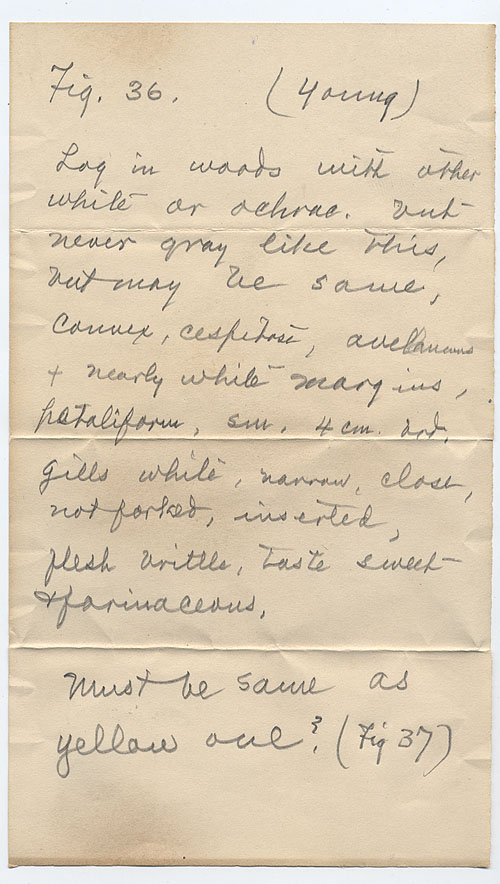 Fig. 36. (Young)
Log in woods with other
white or ochrac. but
never gray like this,
but may be same,
Convex, cespitose, avellaneous
+ nearly white margins,
petaliform, sm. 4 cm. brd.
gills white, narrow, close,
not forked, inserted,
flesh brittle, taste sweet
& farinaceous,
Must be same as
yellow one? (Fig 37)